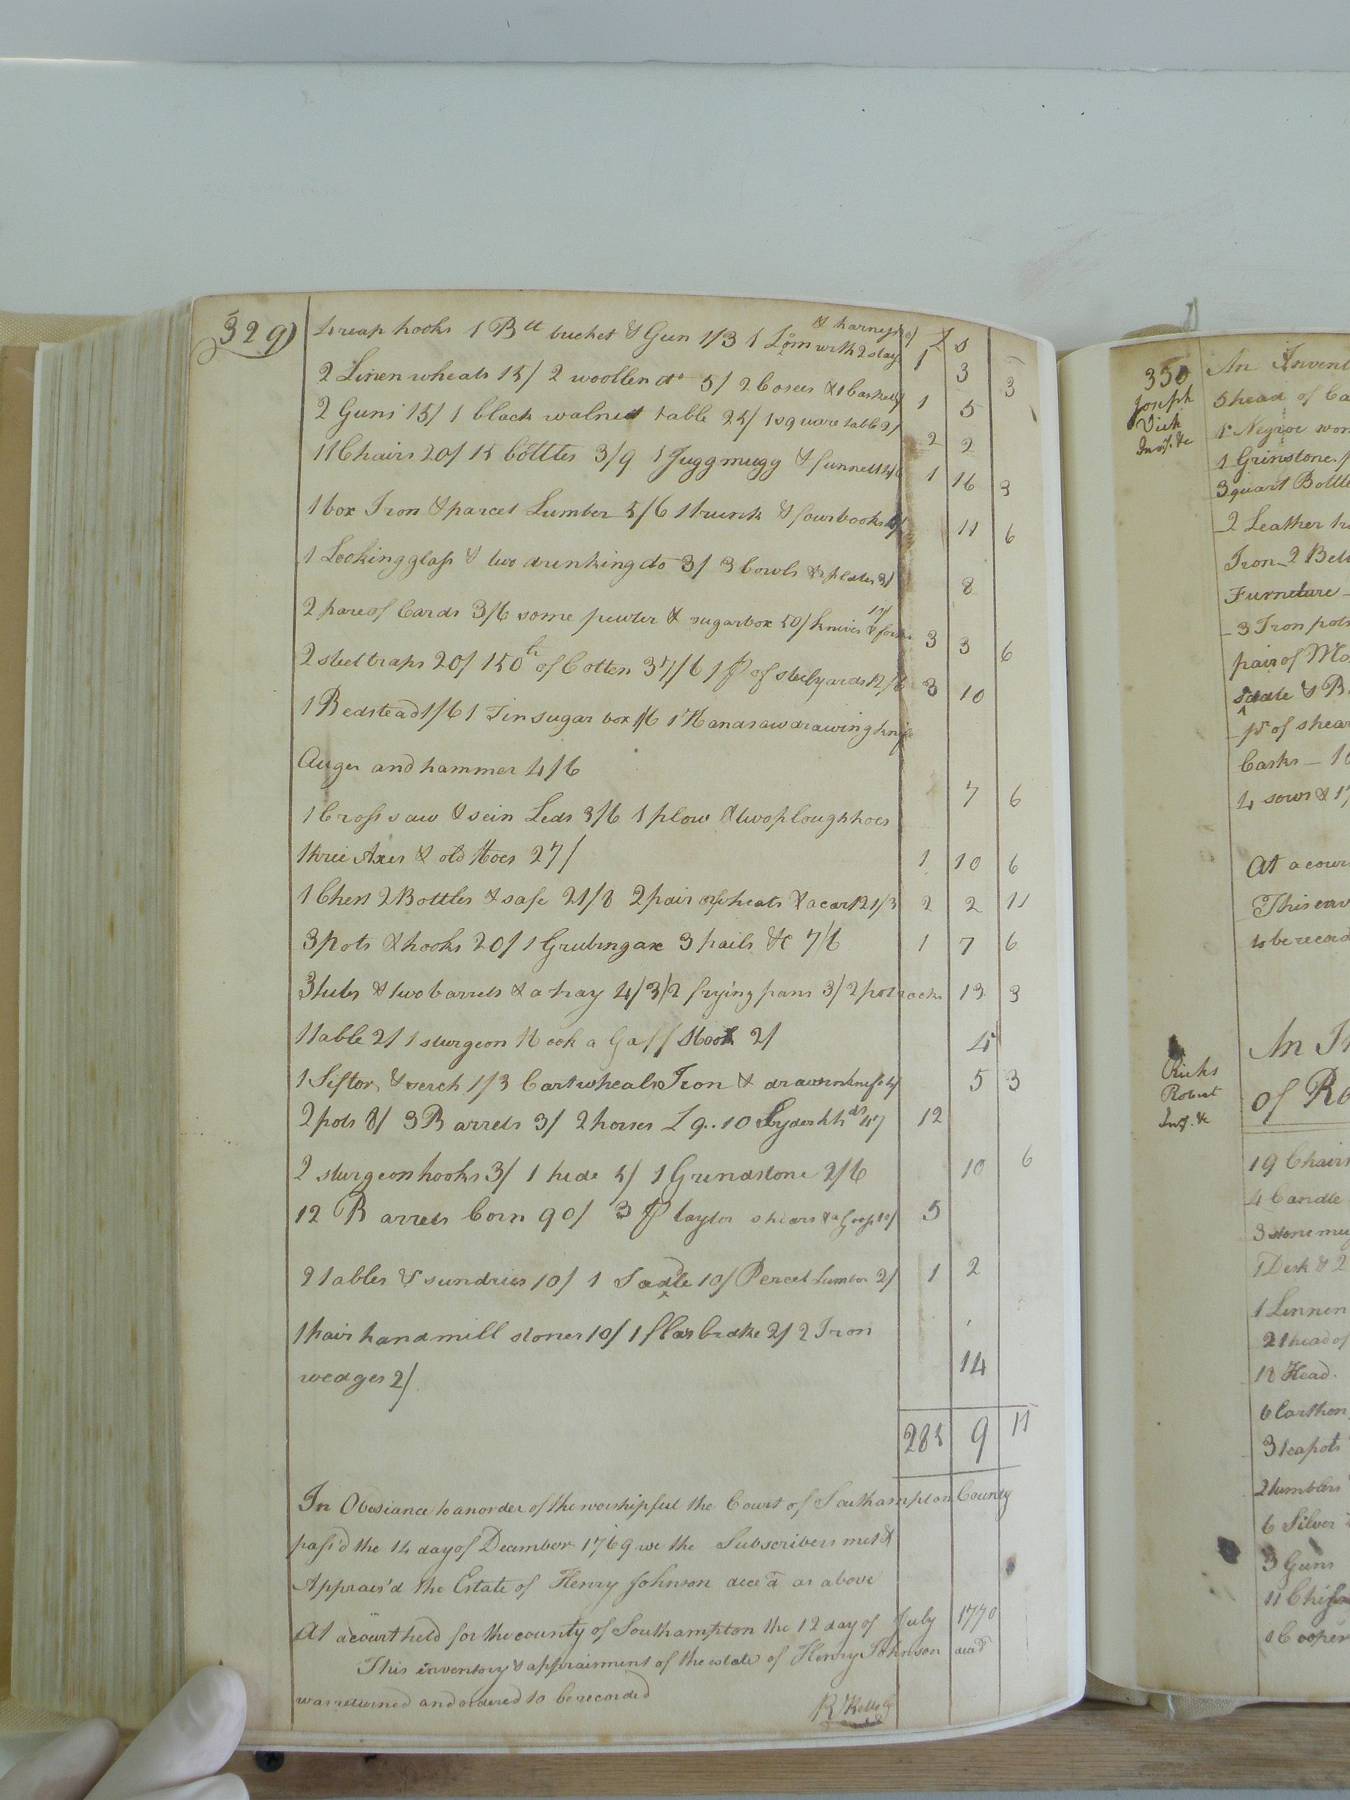 329)
4 reap hooks 1 Btt bucket & Gun 1/3 1 Loom with 2 slay & harness £ s
1 3 3
2 Linen wheals 15/ 2 woollen do 5/ 2 boxes & 1 basket 1 5
2 Guns 15/ 1 black walnut table 25/ 1 square table 2/ 2 2
11 Chairs 20/ 15 bottles 3/9 1 Jugg mugg & funnell 1 16 3
1 box Iron & parcel Lumber 5/6 1 trunk & four books 11 6
1 Looking glass & two drinking do 3/ 3 bowls & plates 8
2 pare of Cards 3/6 some pewter & sugar box 50/ knives & forks 3 3 6
2 steel traps 20/ 150 lb of Cotten 37/6 1 pr of stilyards 12/6 3 10
1 Bedstead 1/6 1 Tin sugar box 1/6 1 Handsaw drawing knife
Auger and hammer 4/6 7 6
1 Cross saw & sein Leds 3/6 1 plow & two plough hoes
three Axes & old Hoes 27/ 1 10 6
1 Chest 2 Bottles & safe 21/8 2 pair of wheals & a cart 21/3 2 2 11
3 pots & hooks 20/ 1 Grubing axe 3 pails &c 7/6 1 7 6
3 tubs & two barrels & a tray 4/3/2 frying pans 3/ 2 pot racks 13 3
1 table 2/ 1 sturgeon Hook a Gaff Hook 2/ 4
1 Siftor & serch 1/3 Cartwheals Iron & drawin knife 4/ 5 3
2 pots 8/ 3 Barrels 3/ 2 horses £ 9..10 Syder hhds 12
2 sturgeon hooks 3/ 1 hide 5/ 1 Grindstone 2/6 10 6
12 Barrels Corn 90/ 3 pr taylor shears 5
2 tables & sundries 10/ 1 Sadle 10/ Percel Lumber 2/ 1 2
1 pair handmill stones 10/ 1 flax brake 2/ 2 Iron
wedges 2/ 14
285 9 11
In Obesiance to an order of the worshipful the Court of Southampton County
pass'd the 14 day of December 1769 we the Subscribers met &
Apprais'd the Estate of Henry Johnson decd as above
At a court held for the county of Southampton the 12 day of July 1770
This inventory & appraisment of the estate of Henry Johnson decd
was returned and ordered to be recorded
350
Joseph
Vick
Inv. &c
An Invent
5 head of
1 Negroe wom
1 Grinstone
3 quart Bottle
2 Leather
Iron 2
Furneture
3 Iron pots
pair of
Sadle &
pr of shear
Casks
4 sows & 17
At a cour
This
to be record
Ricks
Robert
Inv. &c
An
of Ro
19 Chairs
4 Candle
3 stone mug
1 Desk & 2
1 Linnen
21 head of
18 Head
6 Earthen
3 teapots
2 tumblers
6 Silver
3 Guns
11
1 Cooper